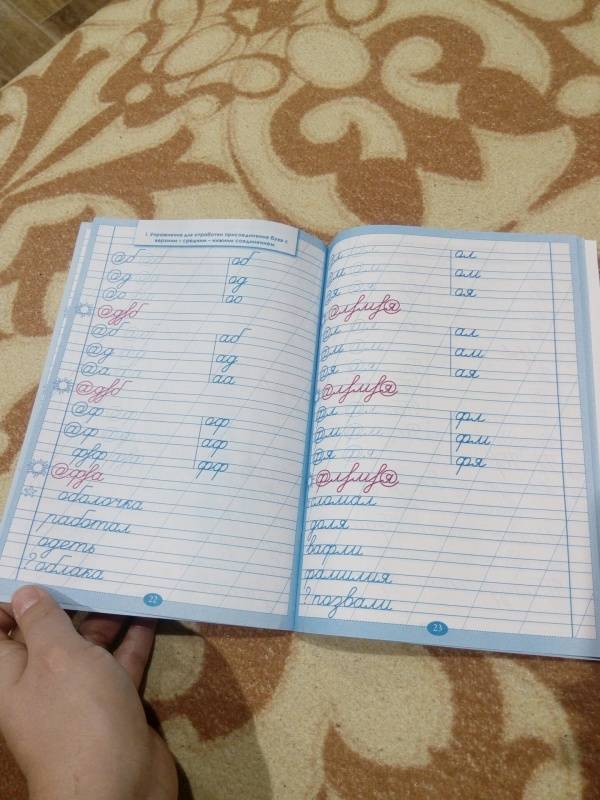 1. Упражнение для отработки присоединения букв с
верхним - средним - нижним соединением
об об
од од
оо оо
аб аб
ад ад
аа аа
оф оф
аф аф
фф фф
оболочка
работал
одеть
? облака
22
ол
ом
оя
ал
ам
ая
фл
фм
фя
ломал
доля
вафли
фамилия
? позвали
23